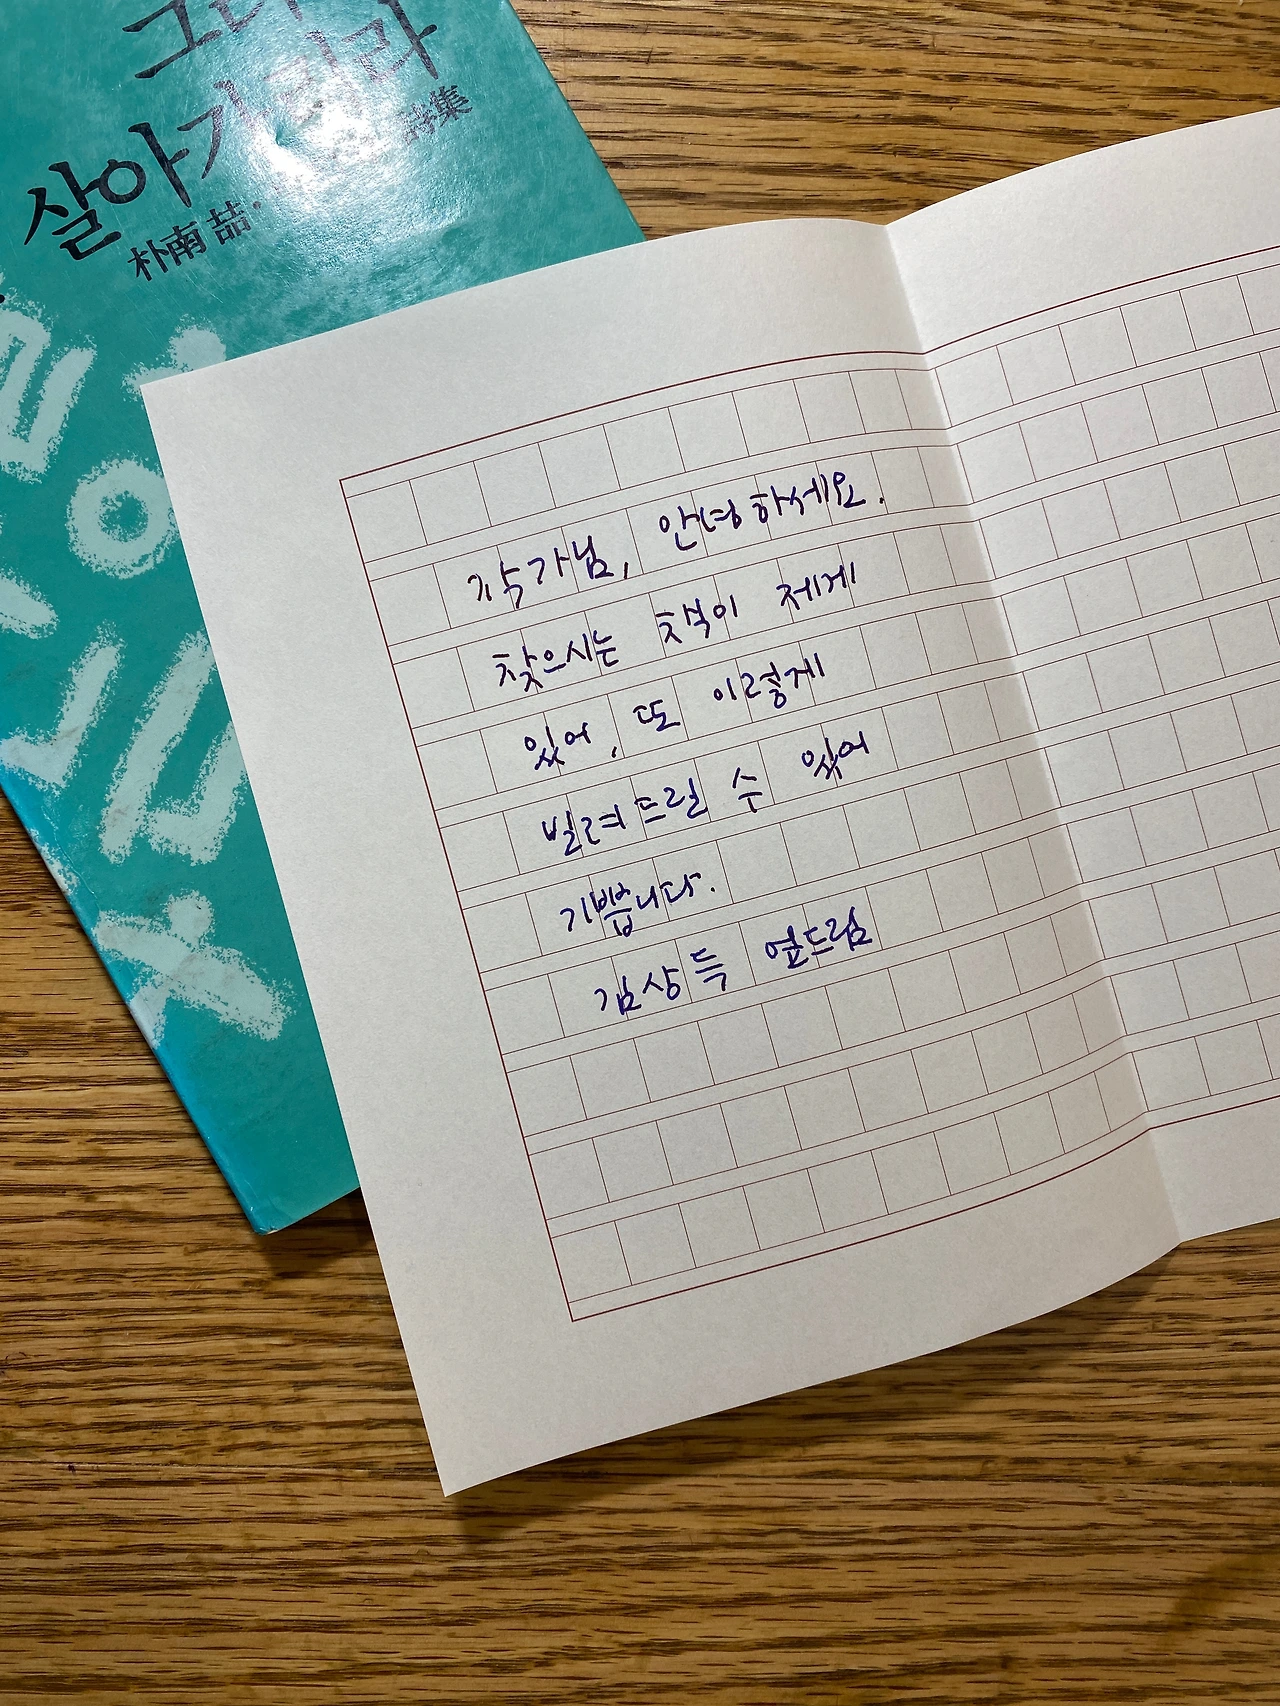 살아가리라
朴南喆 詩集
작가님, 안녕하세요.
찾으시는 책이 제게
있어, 또 이렇게
빌려드릴 수 있어
기쁩니다.
김상득 엎드림